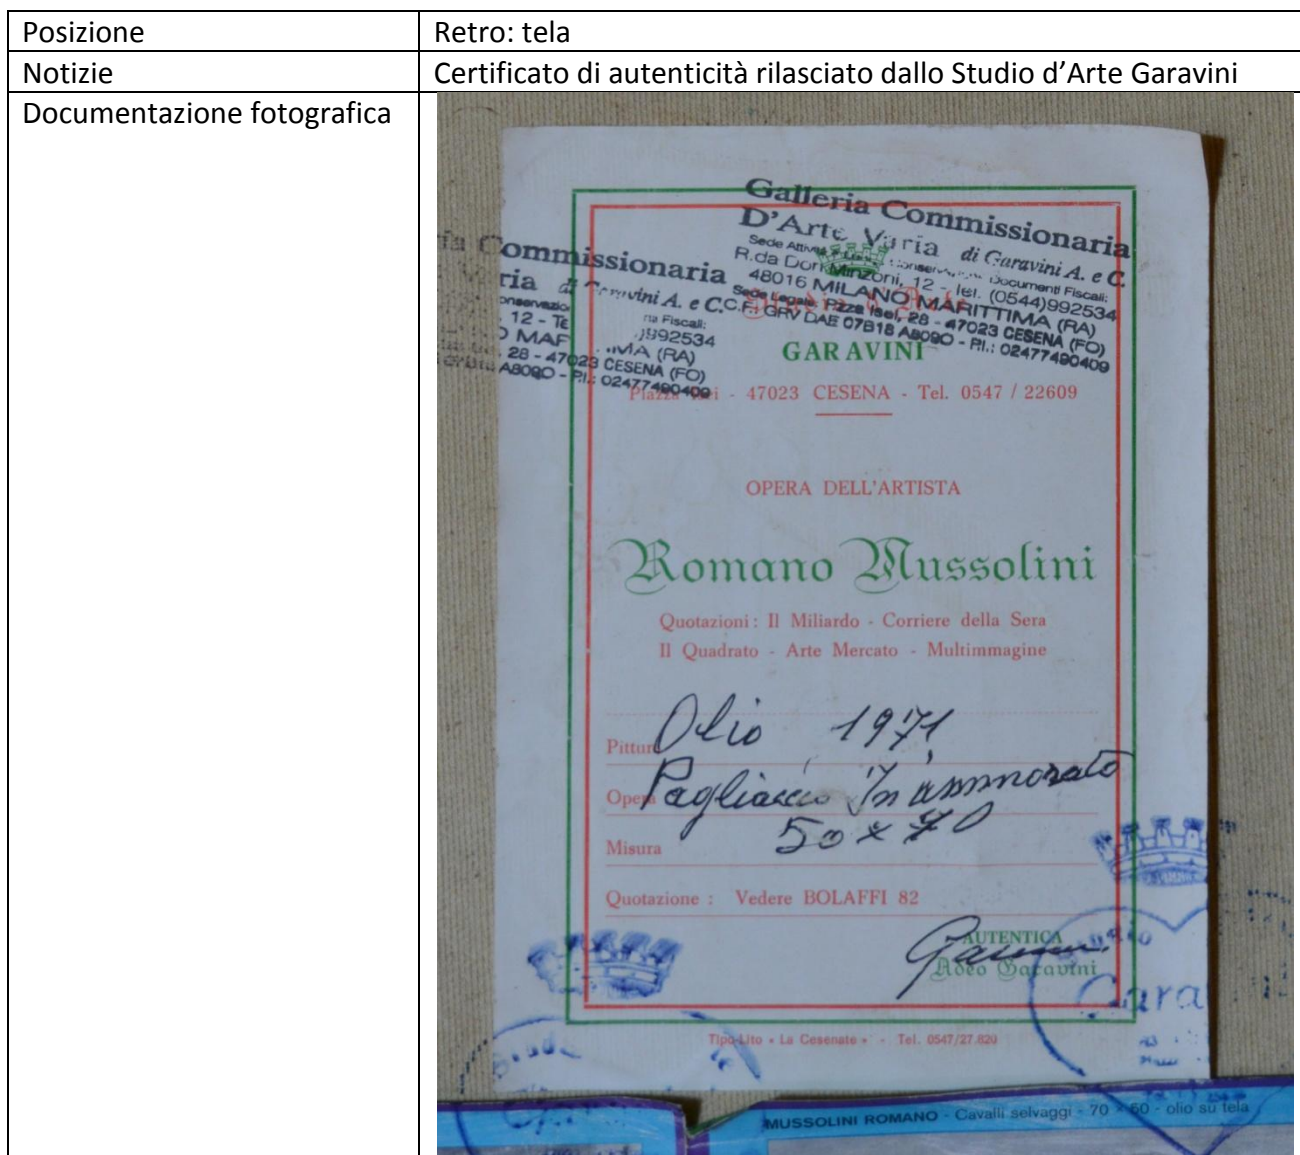 Posizione
Retro: tela
Notizie
Certificato di autenticità rilasciato dallo Studio d’Arte Garavini
Documentazione fotografica
Galleria Commissionaria
D'Arte Varia di Garavini A. e C.
Documenti Fiscali:
R.da Don Minzoni, 12 - Tel. (0544)992534
48016 MILANO MARITTIMA (RA)
Sede Legale P.zza Isei, 28 - 47023 CESENA (FO)
C.F.: GRV DAE 07B18 A809O - P.I.: 02477490409
Commissionaria
di Garavini A. e C.
Fiscali:
12 -
)992534
(RA)
28 - 47023 CESENA (FO)
A809O - P.I.: 02477490409
Studio d'Arte
GARAVINI
Piazza - 47023 CESENA - Tel. 0547 / 22609
OPERA DELL'ARTISTA
Romano Mussolini
Quotazioni : Il Miliardo - Corriere della Sera
Il Quadrato - Arte Mercato - Multimmagine
Pittura Olio 1971
Opera Pagliaccio Innammorato
Misura 50 x 70
Quotazione : Vedere BOLAFFI 82
AUTENTICA
Adeo Garavini
Tipo-Lito « La Cesenate » - Tel. 0547/27.820
Studio
MUSSOLINI ROMANO - Cavalli selvaggi - 70 × 50 - olio su tela